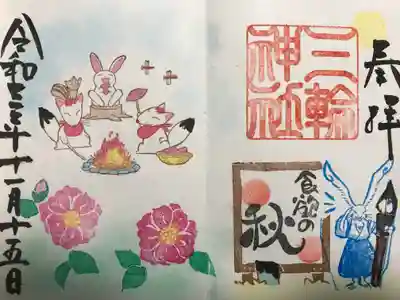 奉拝
三輪
神社
食欲の
秋
令和三年十一月十五日